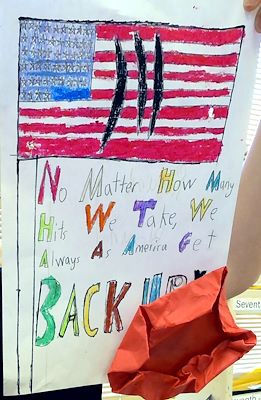 No Matter How Many
Hits We Take, We
Always As America Get
BACK
Sevent